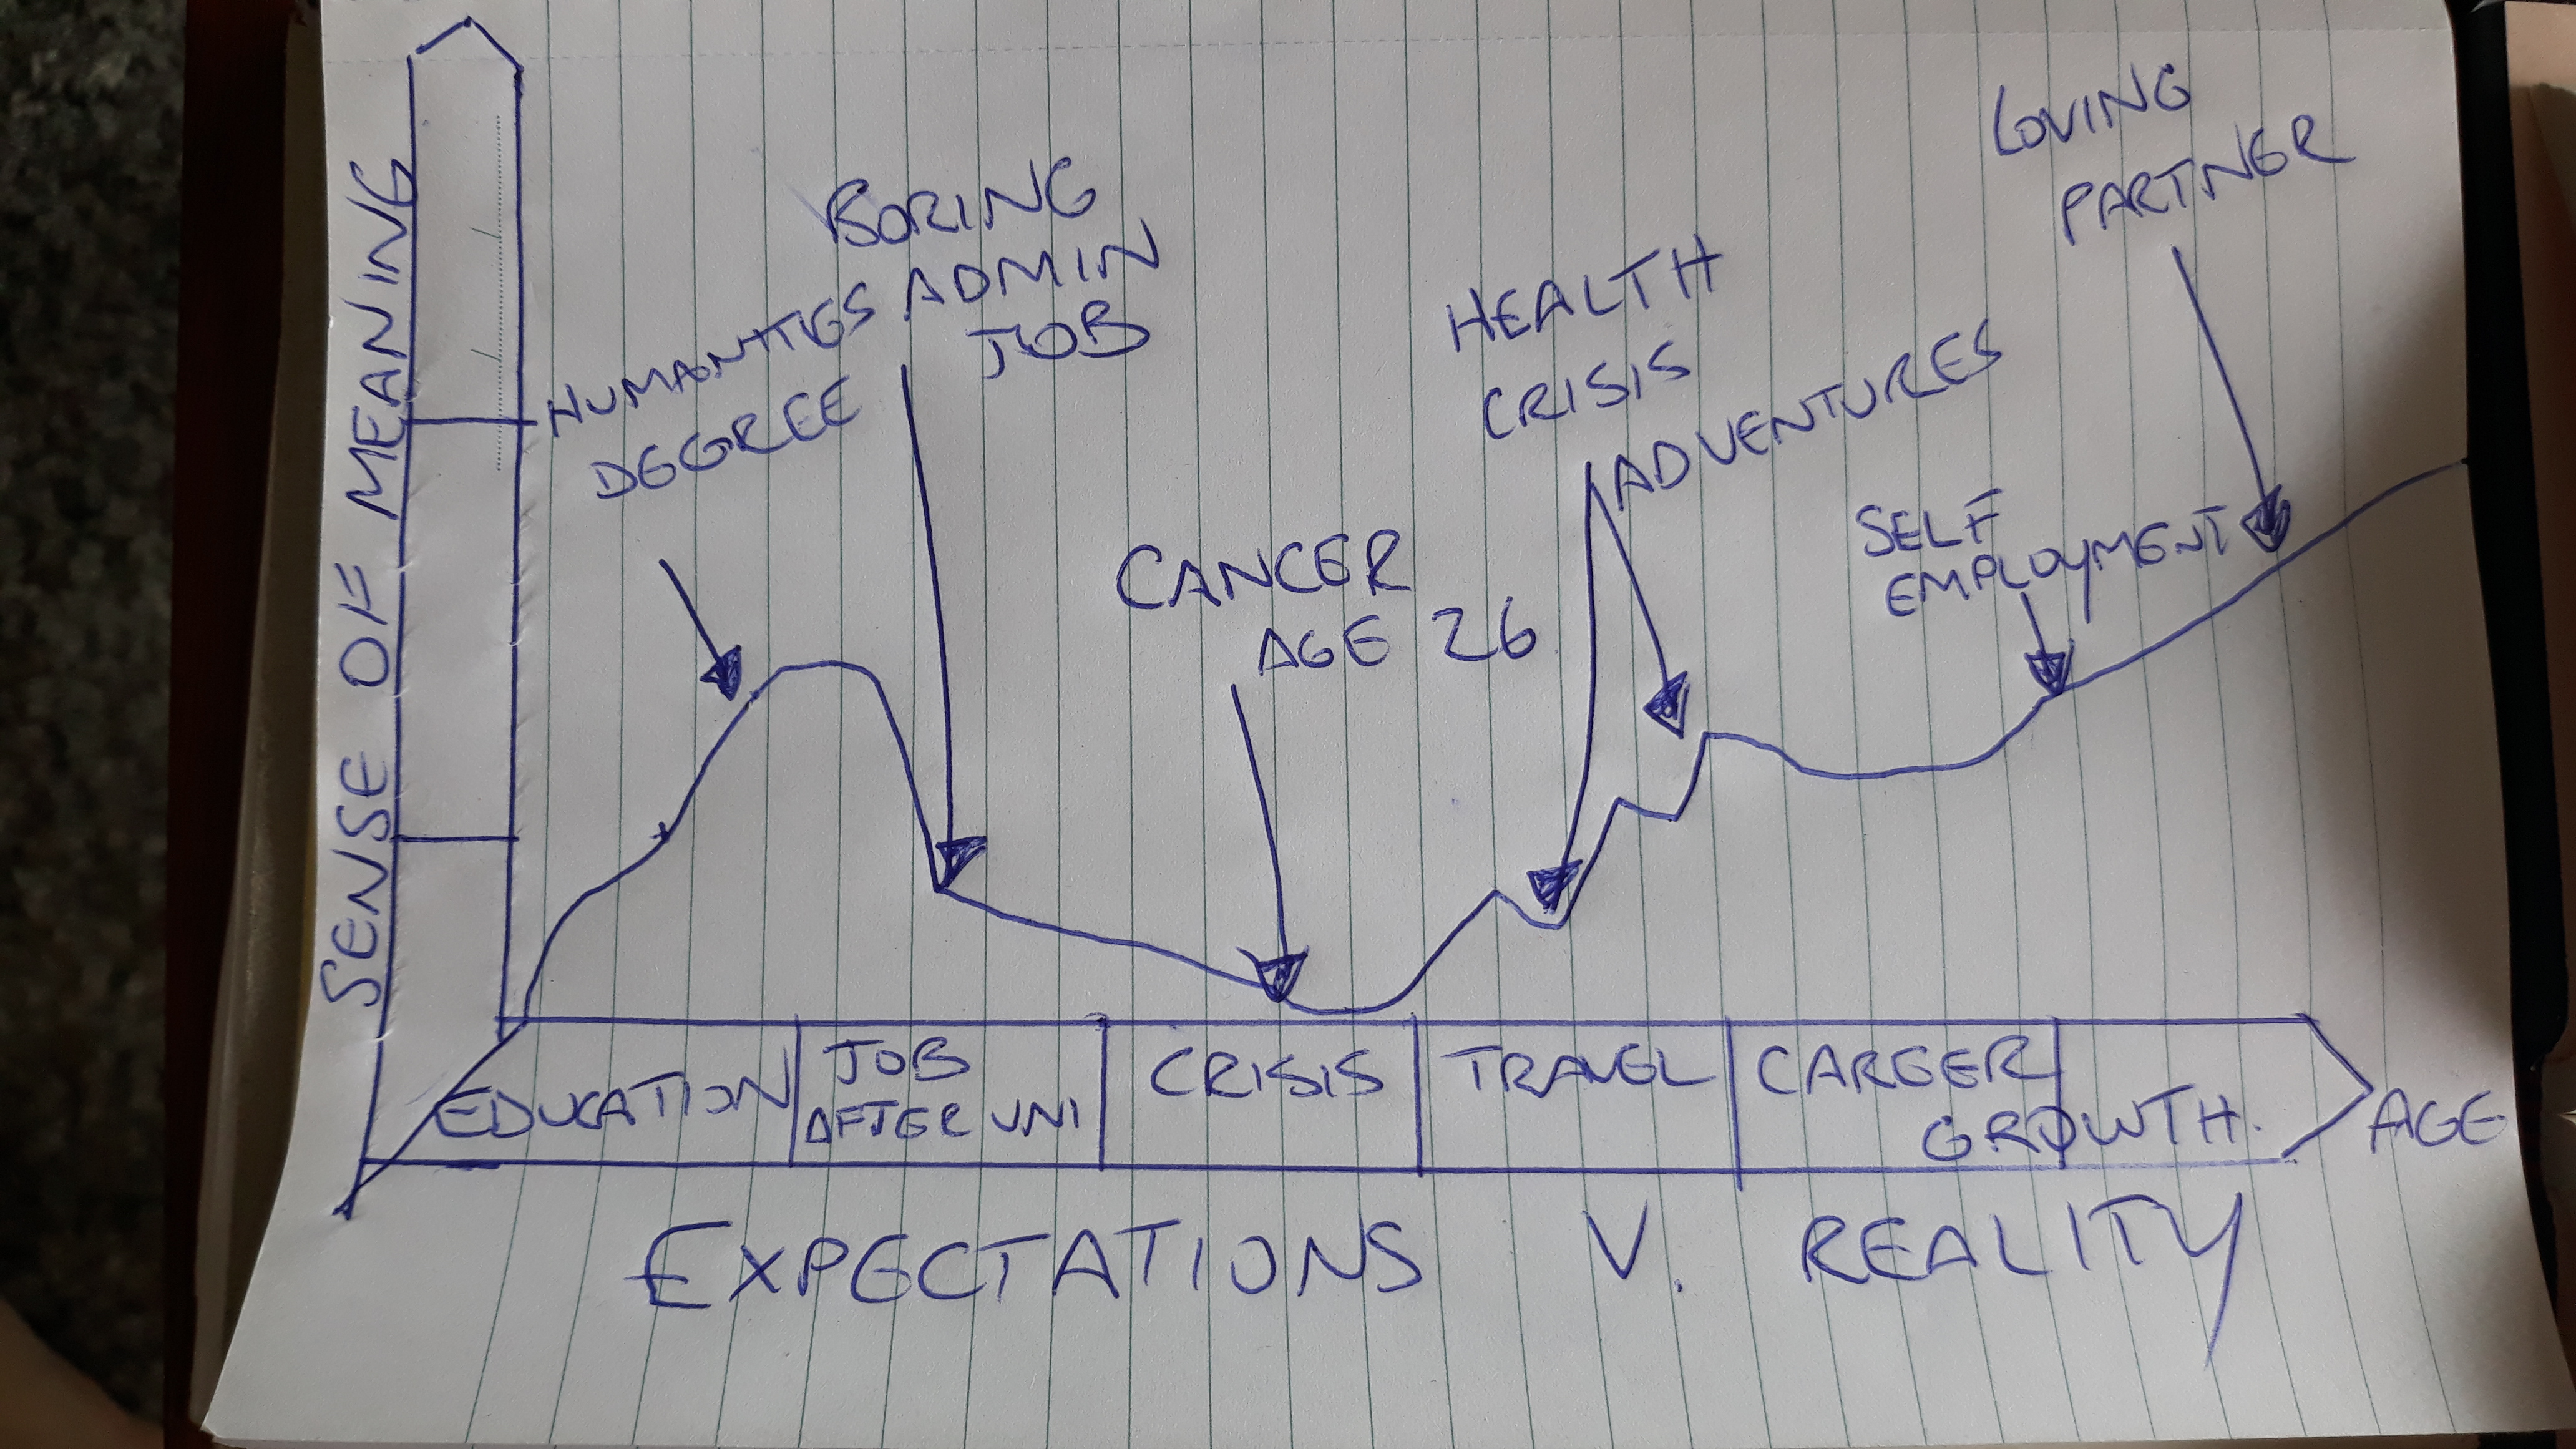 LOVING
PARTNER
BORING
ADMIN
JOB
HUMANITIES
DEGREE
HEALTH
CRISIS
ADVENTURES
SELF
EMPLOYMENT
CANCER
AGE 26
SENSE OF MEANING
EDUCATION
JOB
AFTER UNI
CRISIS
TRAVEL
CAREER
GROWTH.
AGE
EXPECTATIONS V. REALITY